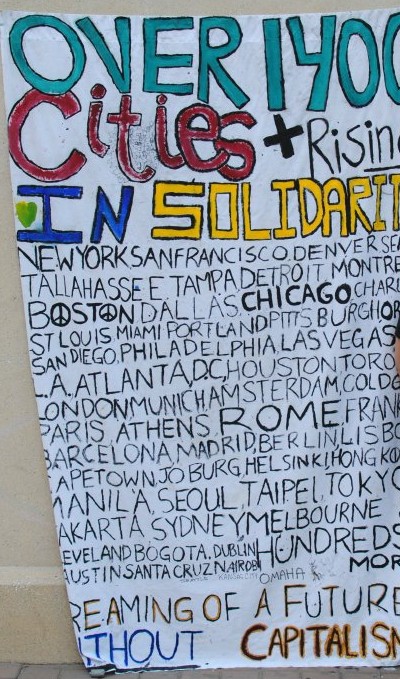 OVER 1400
Cities + Rising
IN SOLIDARIT
NEWYORK.SANFRANCISCO.DENVER SE
TALLAHASSEE TAMPA DETROIT MONTRE
BOSTON DALLAS. CHICAGO CHAR
ST LOUIS MIAMI PORTLAND PITTSBURGH OR
SAN DIEGO, PHILADELPHIA, LAS VEGAS
L.A, ATLANTA, D.C, HOUSTON TORO
ONDON MUNICH AMSTERDAM, COLOG
PARIS ATHENS ROME FRANK
BARCELONA, MADRID, BERLIN, LISBO
APETOWN, JO'BURG, HELSINKI, HONG KO
MANILA SEOUL TAIPEI, TOKYO
AKARTA SYDNEY MELBOURNE
EVELAND BOGOTA. DUBLIN HUNDREDS
AUSTIN. SANTA CRUZ NAIROBI MOR
SEATTLE KANSAS CITY OMAHA
REAMING OF A FUTURE
ITHOUT CAPITALISM